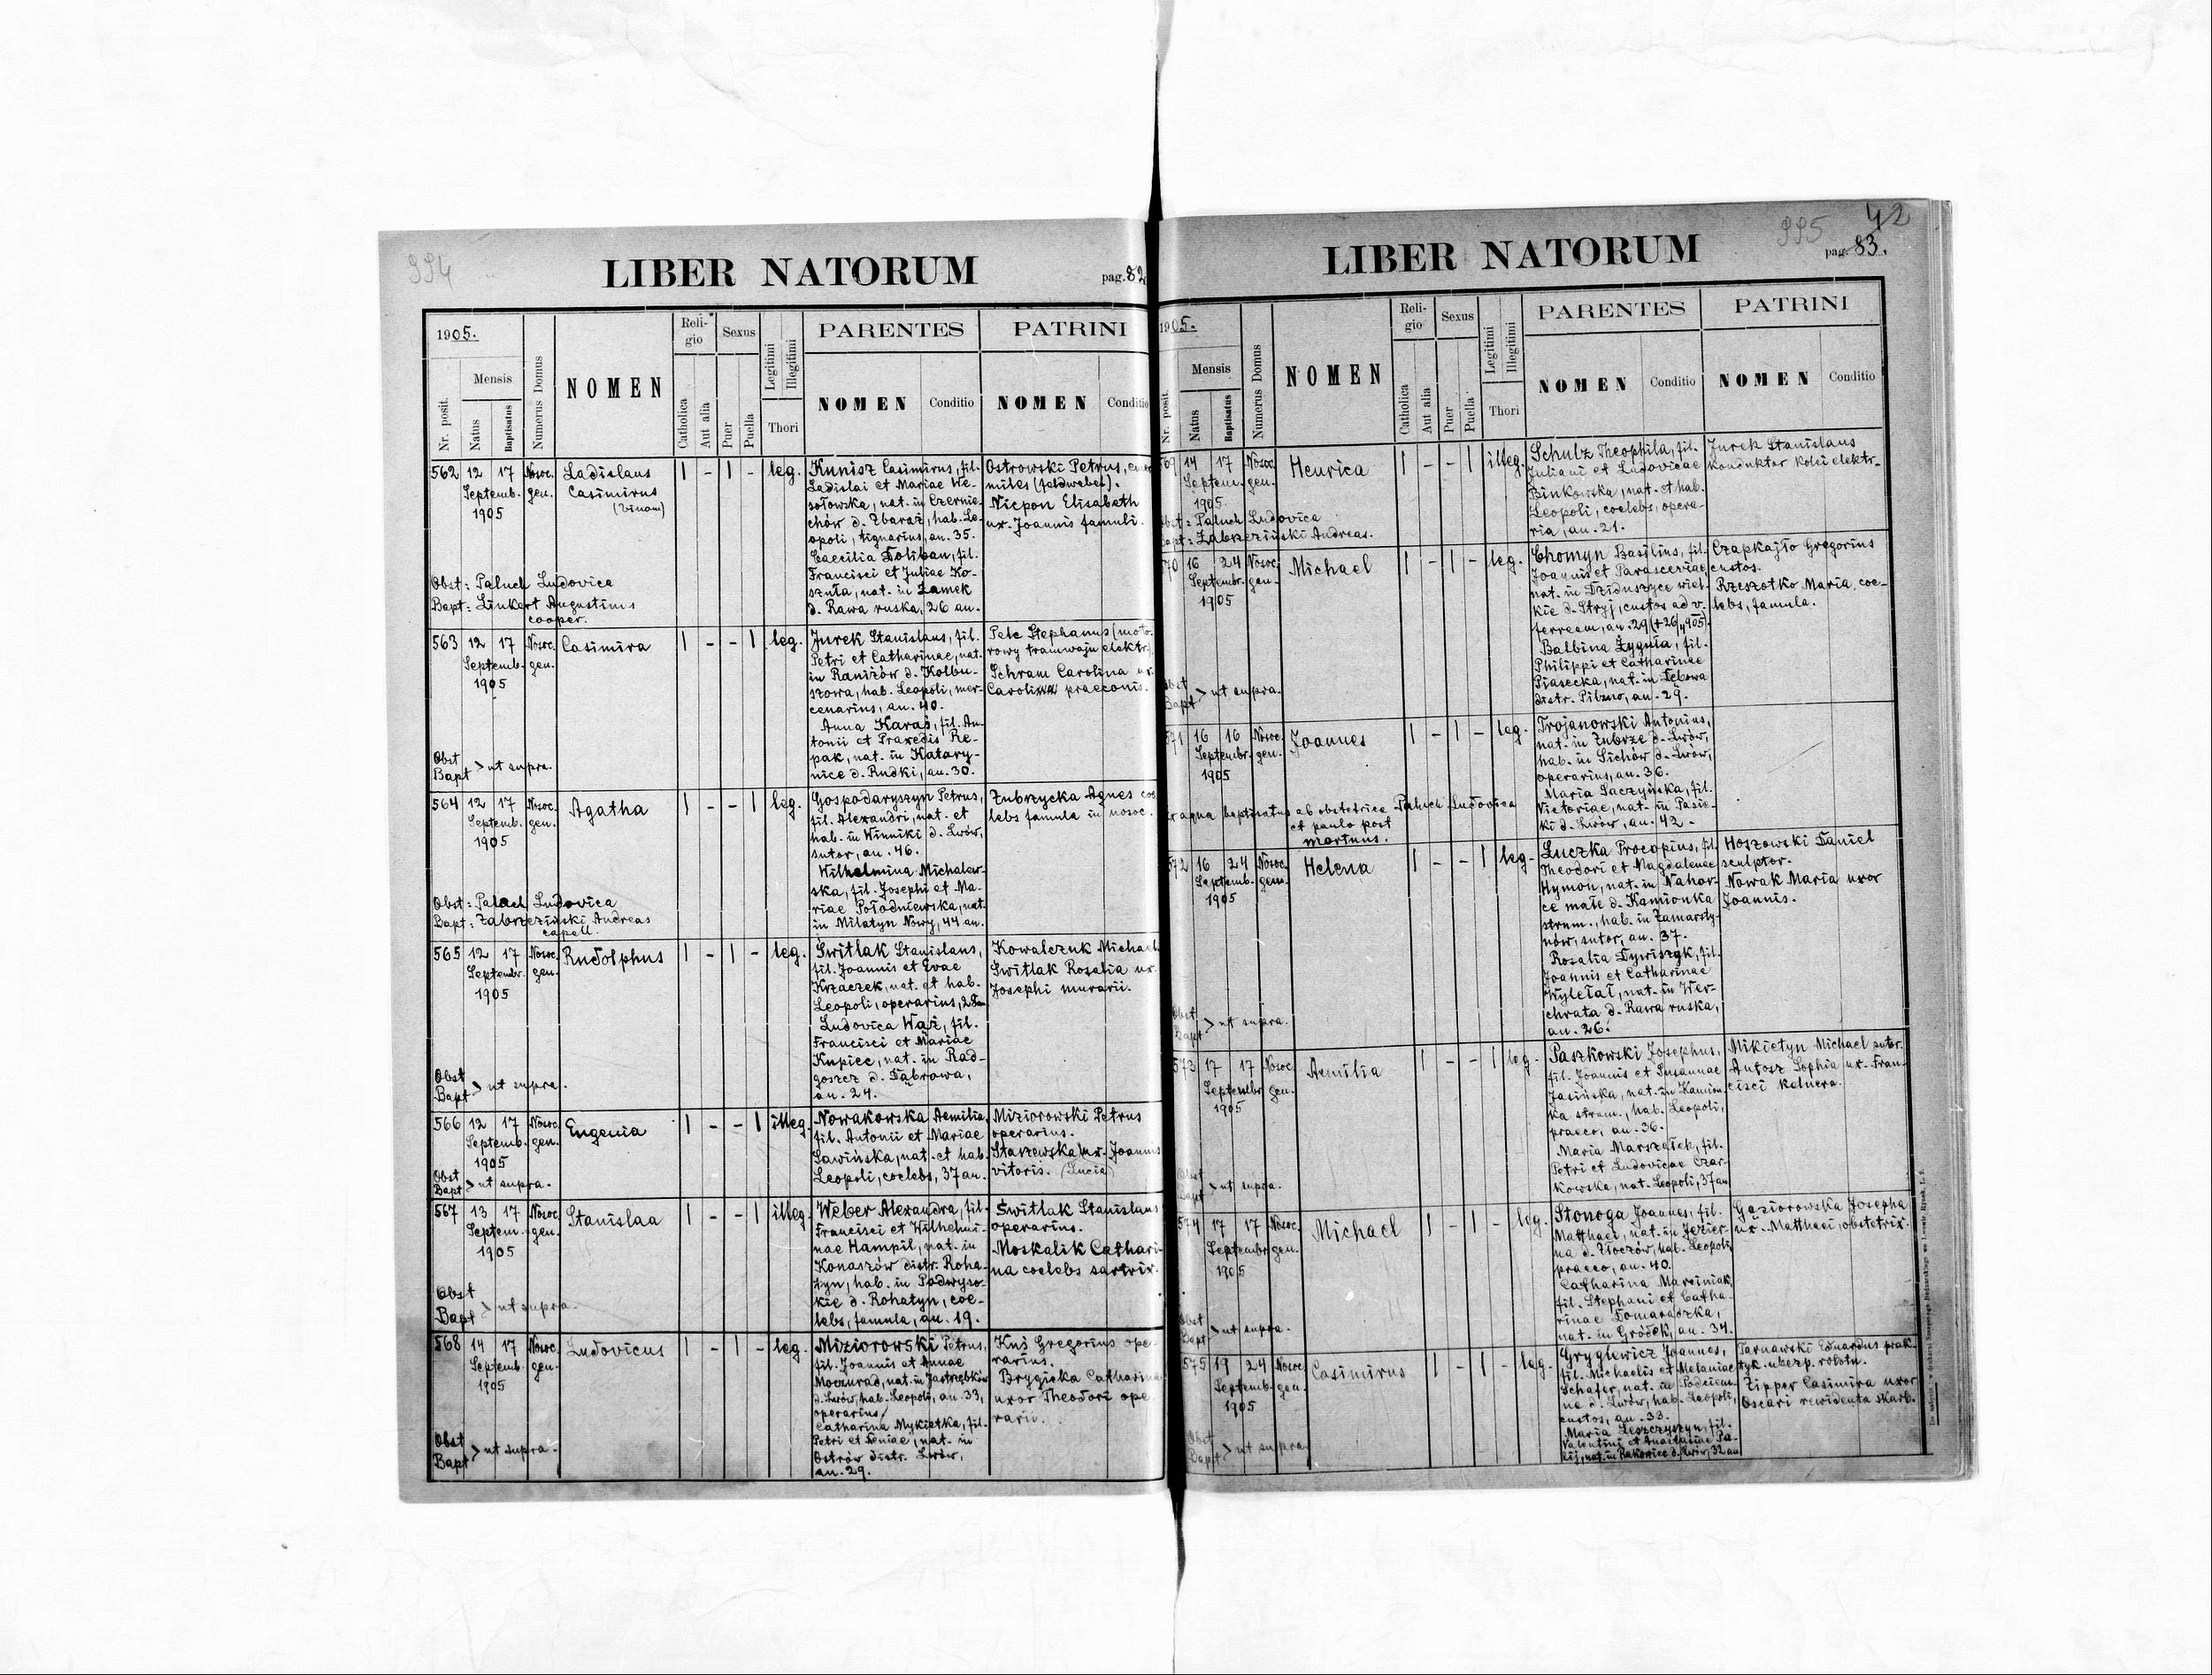 994
LIBER NATORUM
pag. 82
1905.
Nr. posit.
Mensis
Natus
Baptisatus
Numerus Domus
NOMEN
Reli-
gio
Catholica
Aut alia
Sexus
Puer
Puella
Legitimi
Illegitimi
Thori
PARENTES
NOMEN
Conditio
PATRINI
NOMEN
Conditio
562 12 17 Nosoc.
Septemb. gen.
1905
Ladislaus
Casimirus
(binom)
1 - 1 - leg.
Kunisz Casimirus, fil.
Ladislai et Mariae We-
sołowska, nat. in Czernie-
chów d. Zbaraż, hab. Le-
opoli, tignarius, an. 35.
Caecilia Doliban, fil.
Francisci et Juliae Ko-
szuła, nat. in Zamek
d. Rawa ruska, 26 an.
Ostrowski Petrus,
miles (feldwebel).
Nicpon Elisabeth
ux. Joannis famuli.
Obst: Paluch Ludovica
Bapt: Linkert Augustinus
cooper.
563 12 17 Nosoc.
Septemb. gen.
1905
Casimira
1 - - 1 leg.
Jurek Stanislaus, fil.
Petri et Catharinae, nat.
in Raniżów d. Kolbu-
szowa, hab. Leopoli, mer-
cenarius, an. 40.
Anna Karaś, fil. An-
tonii et Praxedis Re-
pak, nat. in Katary-
nice d. Rudki, an. 30.
Pelc Stephanus (moto-
rowy tramwaju elektr.)
Schram Carolina ux.
Caroli praeconis.
Obst
Bapt > ut supra.
564 12 17 Nosoc.
Septemb. gen.
1905
Agatha
1 - - 1 leg.
Gospodaryszyn Petrus,
fil. Alexandri, nat. et
hab. in Winniki d. Lwów,
sutor, an. 46.
Wilhelmina Michalew-
ska, fil. Josephi et Ma-
riae Połodniewska, nat.
in Milatyn Nowy, 44 an.
Zubrzycka Agnes coe
lebs famula in nosoc.
Obst: Paluch Ludovica
Bapt: Zabrzeziński Andreas
capell.
565 12 17 Nosoc.
Septembr. gen.
1905
Rudolphus
1 - 1 - leg.
Switlak Stanislaus,
fil. Joannis et Evae
Krzaczek, nat. et hab.
Leopoli, operarius, 28
Ludovica Wąż, fil.
Francisci et Mariae
Kupiec, nat. in Rad-
goszcz d. Dąbrowa,
an. 24.
Kowalczuk Michael
Switlak Rosalia ux.
Josephi murarii.
Obst
Bapt > ut supra.
566 12 17 Nosoc.
Septemb. gen.
1905
Eugenia
1 - - 1 illeg.
Nowakowska Aemilia,
fil. Antonii et Mariae
Sawińska, nat. et hab.
Leopoli, coelebs, 37 an.
Miziorowski Petrus
operarius.
Starzewska ux. Joannis
vitoris. (Lucia)
Obst
Bapt > ut supra.
567 13 17 Nosoc.
Septem. gen.
1905
Stanislaa
1 - - 1 illeg.
Weber Alexandra, fil.
Francisci et Wilhelmi-
nae Hampil, nat. in
Konaszów distr. Roha-
tyn, hab. in Podwyso-
kie d. Rohatyn, coe-
lebs, famula, an. 19.
Świtlak Stanislaus
operarius.
Moskalik Cathari-
na coelebs sartrix.
Obst
Bapt > ut supra.
568 14 17 Nosoc.
Septemb. gen.
1905
Ludovicus
1 - 1 - leg.
Miziorowski Petrus,
fil. Joannis et Annae
Moczurad, nat. in Jastrzębków
d. Lwów, hab. Leopoli, an. 33,
operarius,
Catharina Mykietka, fil.
Petri et Xeniae, nat. in
Ostrów distr. Lwów,
an. 29.
Kuś Gregorius ope-
rarius.
Brygicka Catharina
uxor Theodori ope
rarii.
Obst
Bapt > ut supra.
995
42
LIBER NATORUM
pag. 83.
1905.
Nr. posit.
Mensis
Natus
Baptisatus
Numerus Domus
NOMEN
Reli-
gio
Catholica
Aut alia
Sexus
Puer
Puella
Legitimi
Illegitimi
Thori
PARENTES
NOMEN
Conditio
PATRINI
NOMEN
Conditio
69 14 17 Nosoc.
Septem. gen.
1905.
Henrica
1 - - 1 illeg.
Schulz Theophila, fil.
Juliani et Ludovicae
Binkowska, nat. et hab.
Leopoli, coelebs, opera-
ria, an. 21.
Jurek Stanislaus
konduktor kolei elektr.
Obst: Paluch Ludovica
Bapt: Zabrzeziński Andreas.
70 16 24 Nosoc.
Septembr. gen.
1905
Michael
1 - 1 - leg.
Chomyn Basilius, fil.
Joannis et Parasceviae,
nat. in Dzieduszyce wiel-
kie d. Stryj, custos ad v.
ferream, an. 29 (+26/ 1905).
Balbina Żyguła, fil.
Philippi et Catharinae
Piasecka, nat. in Dębowa
distr. Pilzno, an. 29.
Czapkajło Gregorius
custos.
Rzeszotko Maria, coe-
lebs, famula.
Obst
Bapt > ut supra.
571 16 16 Nosoc.
Septembr. gen.
1905
Joannes
1 - 1 - leg.
Trojanowski Antonius,
nat. in Zubrze d. Lwów,
hab. in Sichów d. Lwów,
operarius, an. 36.
Maria Saczyńska, fil.
Victoriae, nat. in Pasie-
ki d. Lwów, an. 42.
ex aqua baptisatus ab obstetrice Paluch Ludovica
et paulo post
mortuus.
572 16 24 Nosoc.
Septemb. gen.
1905
Helena
1 - - 1 leg.
Łuczka Procopius, fil.
Theodori et Magdalenae
Hymon, nat. in Nahor-
ce małe d. Kamionka
strum., hab. in Zamarsty-
nów, sutor, an. 37.
Rosalia Dywiszyk, fil.
Joannis et Catharinae
Wyletał, nat. in Wer-
chrata d. Rawa ruska,
an. 26.
Hoszowski Daniel
sculptor.
Nowak Maria uxor
Joannis.
Obst
Bapt > ut supra.
573 17 17 Nosoc.
Septembr gen.
1905
Aemilia
1 - - 1 leg.
Paszkowski Josephus,
fil. Joannis et Susannae
Jasińska, nat. in Kamion
ka strum., hab. Leopoli,
praeco, an. 36.
Maria Marszałek, fil.
Petri et Ludovicae Czar-
kowska, nat. Leopoli, 37 an
Mikietyn Michael sutor.
Antosz Sophia ux. Fran-
cisci kelnera.
Obst
Bapt > ut supra.
574 17 17 Nosoc.
Septembr gen.
1905
Michael
1 - 1 - leg.
Stonoga Joannes, fil.
Matthaei, nat. in Jezier-
na d. Złoczów, hab. Leopoli,
praeco, an. 40.
Catharina Marciniak,
fil. Stephani et Catha-
rinae Domaraszka,
nat. in Gródek, an. 34.
Gąziorowska Josepha
ux. Matthaei, obstetrix.
Obst
Bapt > ut supra.
575 19 24 Nosoc.
Septemb. gen.
1905
Casimirus
1 - 1 - leg.
Gryglewicz Joannes,
fil. Michaelis et Melaniae
Schafer, nat. in Podciem-
ne d. Lwów, hab. Leopoli,
custos, an. 33.
Maria Leszczyszyn, fil.
Valentini et Anastasiae Pa-
kij, nat. in Rakowice d. Lwów, 32 an
Tarnawski Eduardus prak-
tyk. ubezp. robotn.
Zipper Casimira uxor
Oscari rewidenta skarb.
Obst
Bapt > ut supra